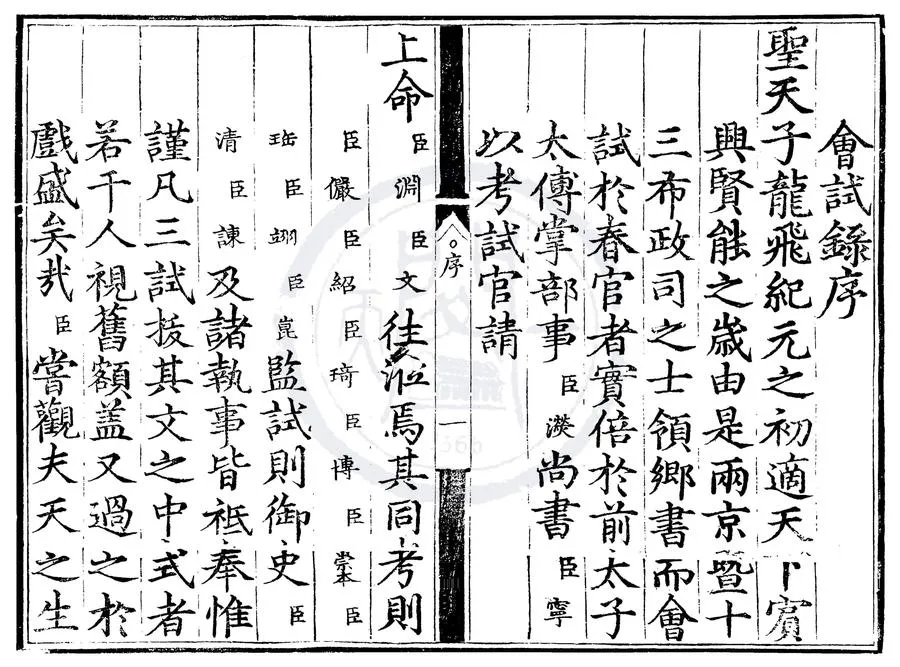 會試錄序
聖天子龍飛紀元之初適天下賓
興賢能之歲由是兩京暨十
三布政司之士領鄉書而會
試於春官者實倍於前太子
太傅掌部事臣濙尚書臣寧
以考試官請
序 一
上命臣淵臣文往涖焉其同考則
臣儼臣紹臣琦臣博臣崇本臣
珤臣翊臣崑監試則御史臣
清臣諫及諸執事皆祗奉惟
謹凡三試拔其文之中式者
若干人視舊額盖又過之於
戲盛矣哉臣嘗觀夫天之生